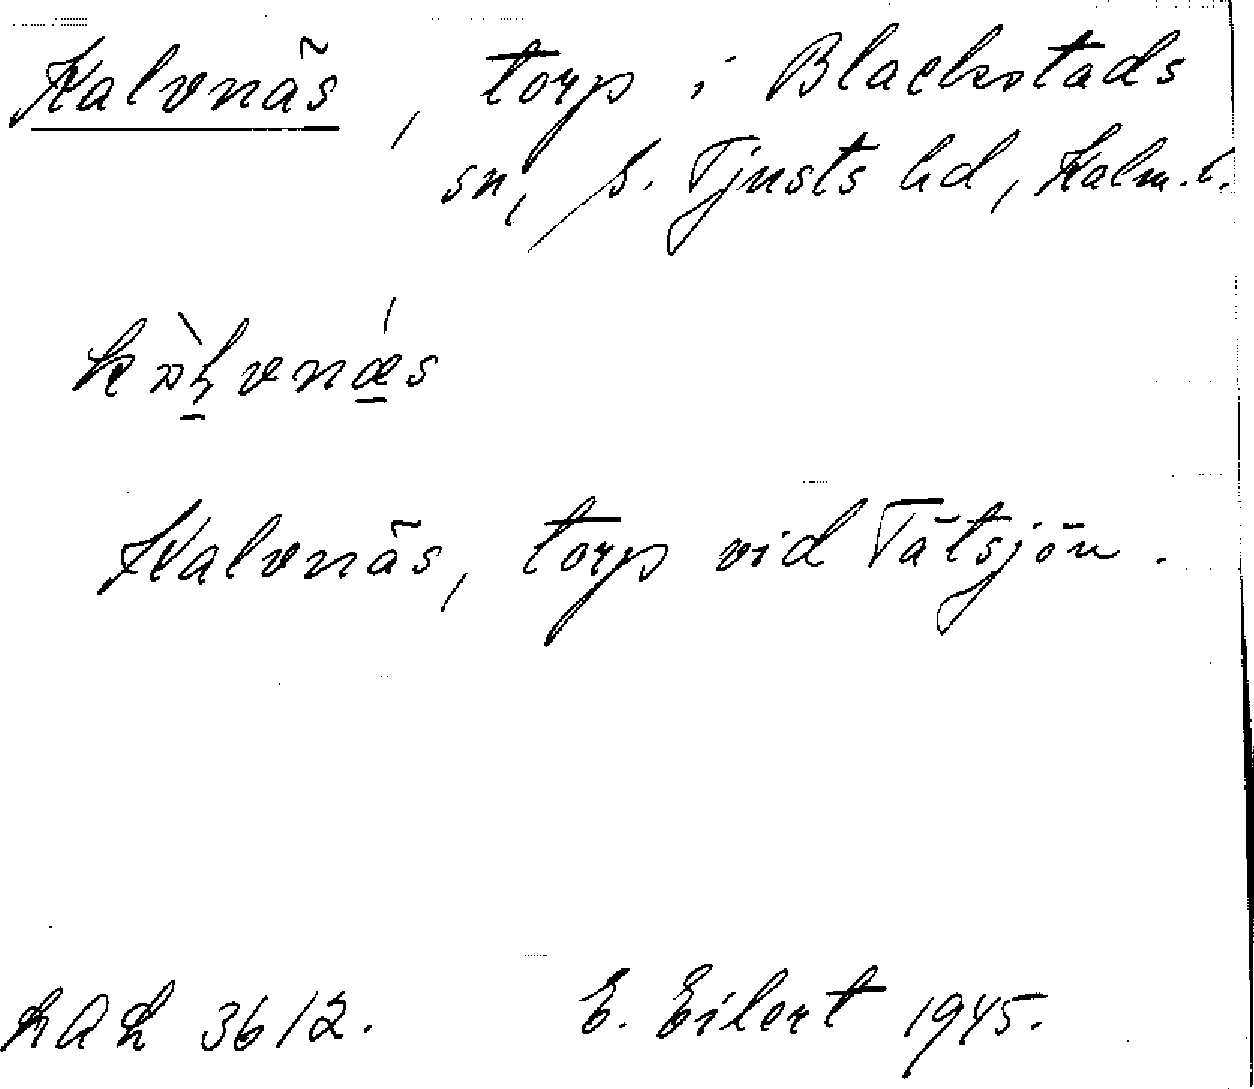 Kalvnäs, torp i Blackstads
sn, s. Tjusts hd, Kalm. l.
Kalvnäs, torp vid Tätsjön.
E. Eilert 1945.